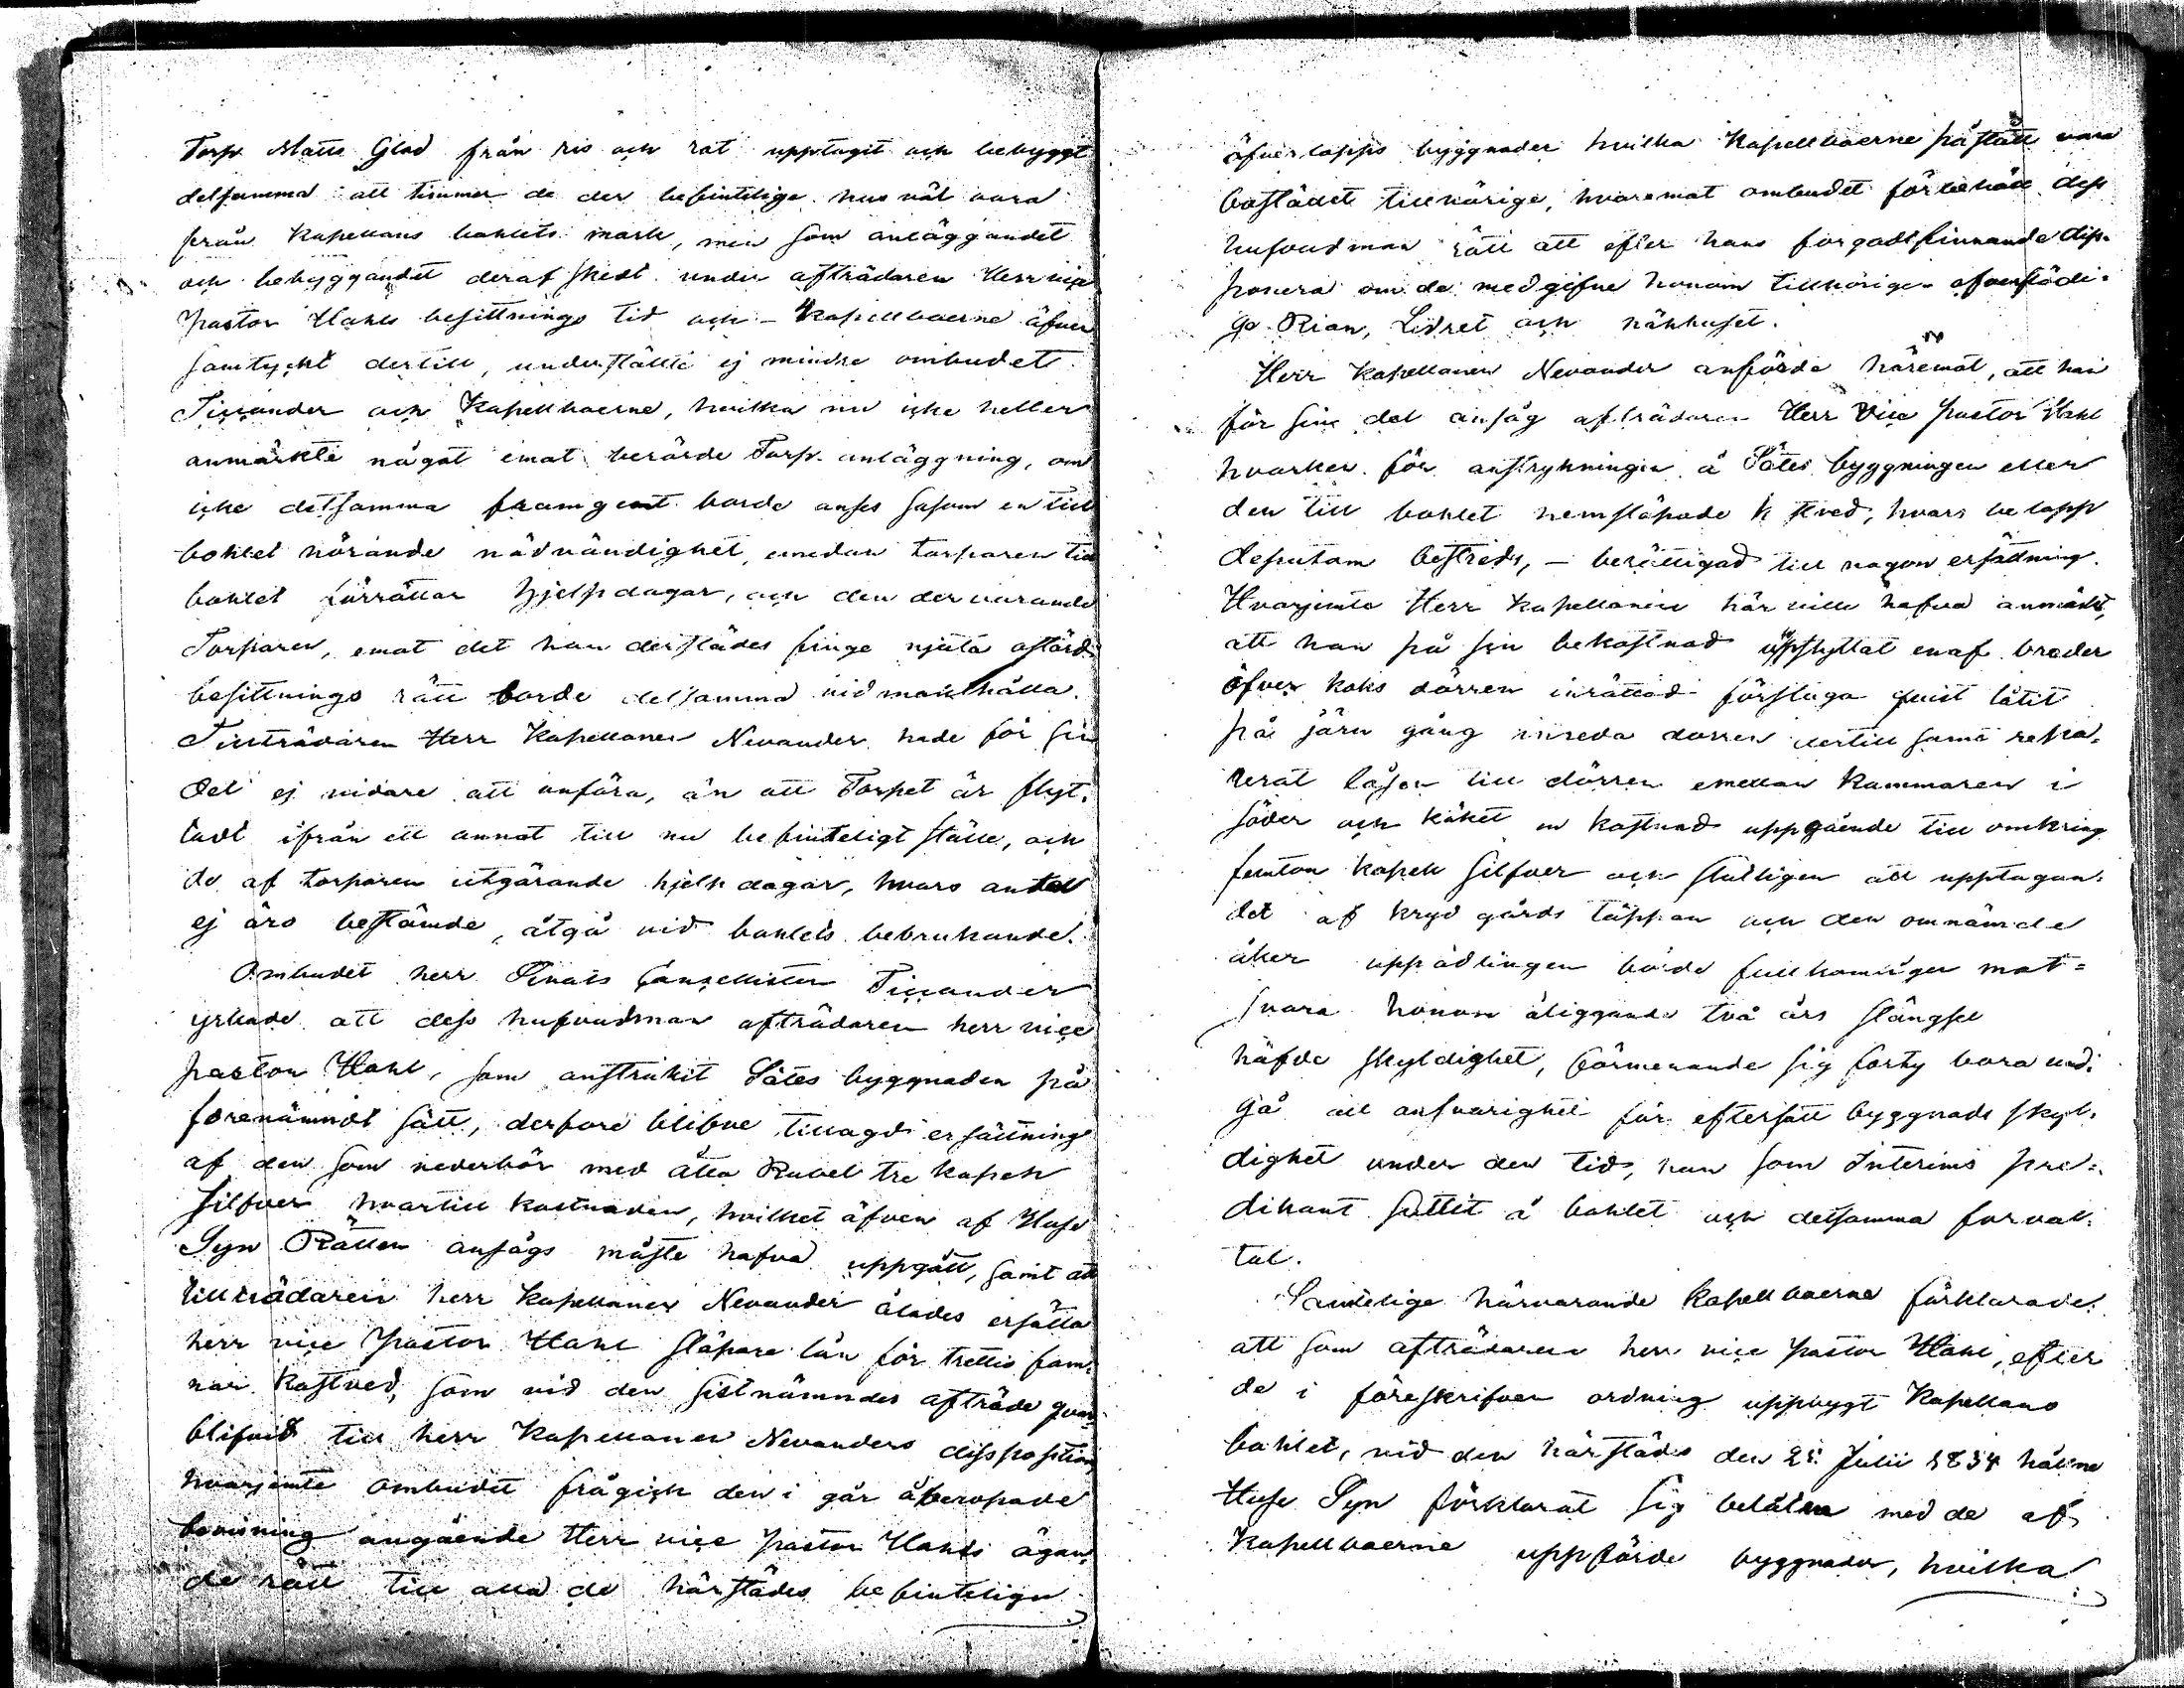 Torp Matts Glad från ris och rot upptagit och bebyggt
detsamma att timmer de der befintelige hus väl vara
från Kapellans bohlets mark, men som anläggandet
och bebyggandet deraf skedt under afträdaren Herr vice
Pastor Hahls besittnings tid och - Kapellboerne äfven
samtyckt dertill, underställte ej mindre ombudet
Ticcander och Kapellboerne, hvilka nu icke heller
anmärkte något emot berörde Torp anläggning, om
icke detsamma framgent borde anses såsom en till
bohlet hörande nödvändighet, emedan torparen till
bohlet förrättar hjelpdagar, och den der varande
Torparen, emot det han derstädes finge njuta
besittnings rätt borde detsamma vidmakthålla.
Tillträdaren Herr Kapellanen Nevander hade för sin
del ej vidare att anföra, än att Torpet är flyt-
tadt ifrån ett annat till nu befinteligt ställe, och
de af torparen utgörande hjelpdagar, hvars antal
ej äro bestämde, åtgå vid bohlets bebrukande.
Ombudet herr Senats Cancellisten Ticcander
yrkade att dess hufvudman afträdaren herr vice
pastor Hahl, som anstrukit Sätes byggnaden på
förenämndt sätt, derföre blifve tillagd ersättning
af den som vederbör med åtta Rubel tre kopek
silfver hvartill kostnaden, hvilket äfven af Huse
Syn Rätten ansågs måste hafva uppgått, samt att
tillträdaren herr Kapellanen Nevander ålades ersätta
herr vice Pastor Hahl släpare lön för trettio fam-
nar kastved, som vid den sistnämndes afträde qvar-
blifvit till herr Kapellanen Nevanders disposition,
hvarjemte ombudet frågick den i går åberopade
bevisning angående Herr vice pastor Hahls ägan-
de rätt till alla de härstädes befintelige
öfverlopps byggnader hvilka Kapellboerne påstått vara
bostället tillhörige, hvaremot ombudet förbehöll dess
hufvudman rätt att efter hans forgodtfinnande dis-
ponera om de medgifne honom tillhörige öfverflödi-
ga Rian, Lidret och
Herr Kapellanen Nevander anförde häremot, att han
för sin del ansåg afträdaren Herr Vice pastor Hahl
hvarken för anstrykningen å Sätes byggningen eller
den till bohlet hemsläpade k stved, hvars belopp
desutom bestreds, - berättigad till någon ersättning.
Hvarjemte Herr Kapellanen här ville hafva anmärkt,
att han på sin bekostnad uppskyttat en af bräder
öfver köks dörren inrättad förstuga qvist låtit
på järn gång inreda dörren dertill samt repa-
rerat låsen till dörren emellan kammaren i
söder och köket en kostnad uppgående till omkring
femton kopek silfver och slutligen att upptagan-
det af kryd gårds täppan och den omnämde
åker uppodlingen borde fullkomligen mot-
svara honom åliggande två års stängsel
häfde skyldighet, förmenande sig forty bora und-
gå all ansvarighet för eftersatt byggnads skyl-
dighet under den tid, han som Interims pre-
dikant suttit å bohlet och detsamma forval-
tat.
Samtelige härvarande Kapellboerne förklarade,
att som afträdaren herr vice Pastor Hahl, efter
de i föreskrifven ordning uppbygt Kapellans
bohlet, vid den härstädes den 25 Julii 1834 hållne
Huse Syn förklarat sig belåten med de af
Kapellboerne uppförde byggnader, hvilka